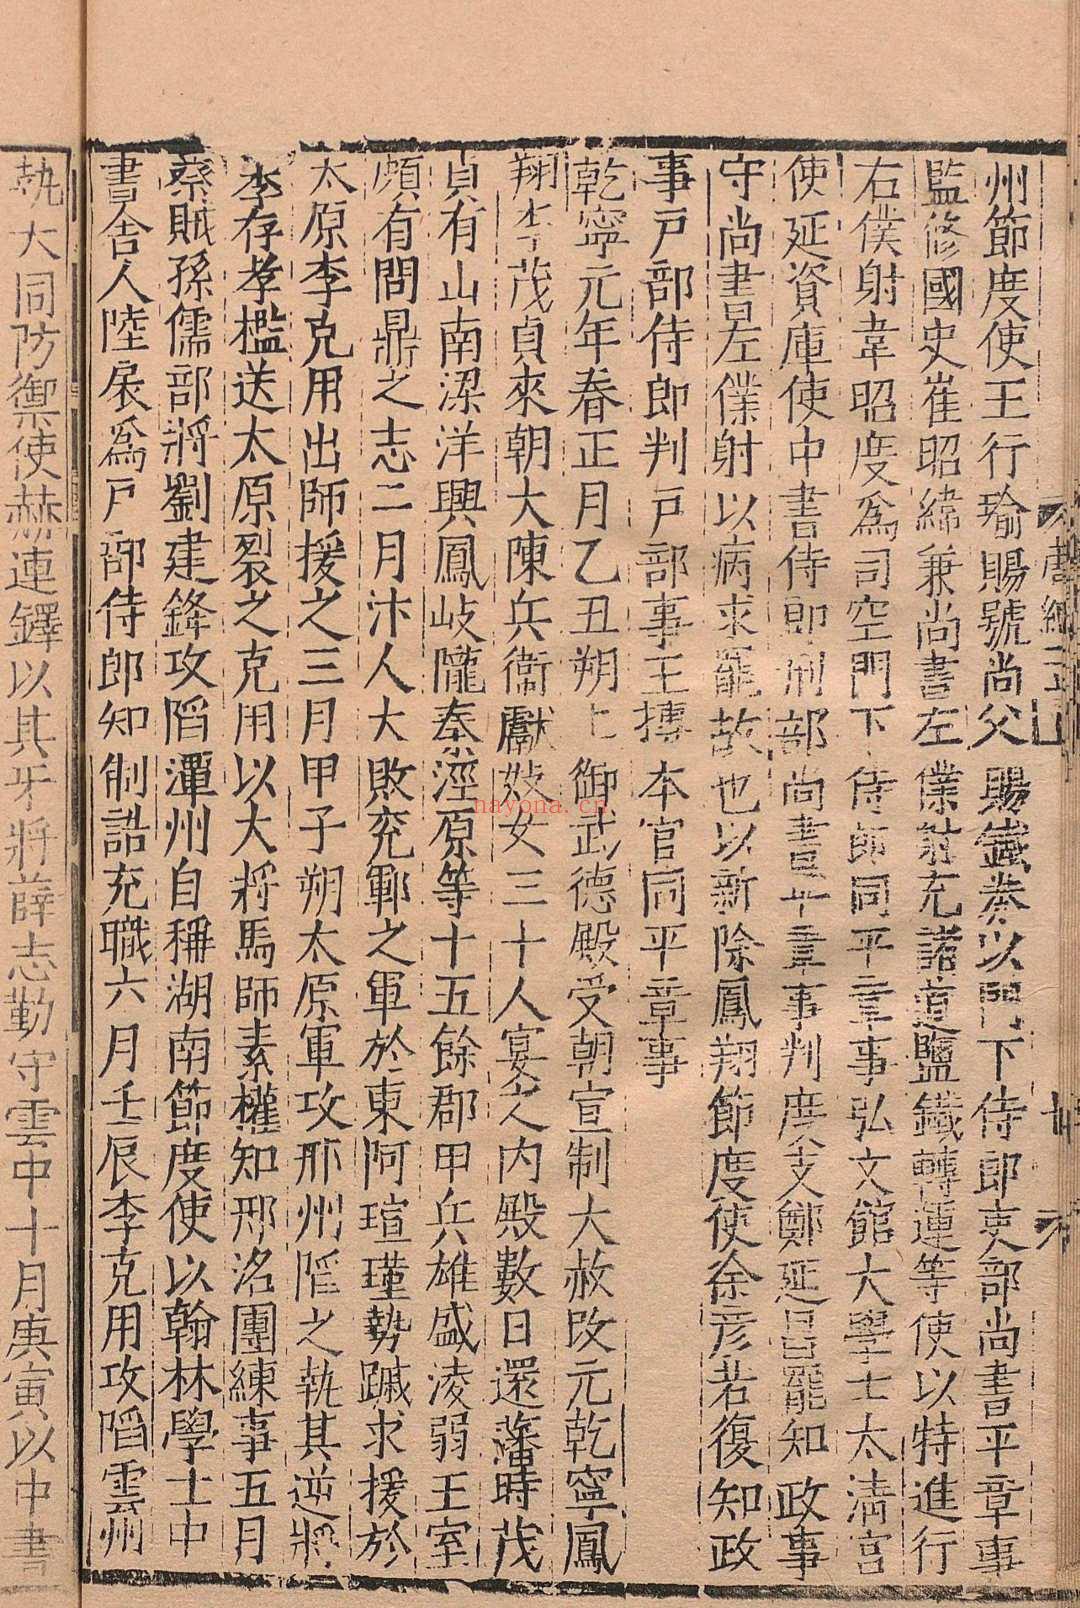 州節度使王行瑜賜號尚父賜鐵券以門下侍郎吏部尚書平章事
監修國史崔昭緯兼尚書左僕射充諸道鹽鐵轉運等使以特進行
右僕射韋昭度爲司空門下侍郎同平章事弘文館大學士太淸宮
使延資庫使中書侍郎刑部尚書平章事判度支鄭延昌罷知政事
守尚書左僕射以病求罷故也以新除鳳翔節度使徐彦若復知政
事戸部侍郎判戸部事王摶本官同平章事
乾寧元年春正月乙丑朔上御武德殿受朝宣制大赦改元乾寧鳳
翔李茂貞來朝大陳兵衞獻妓女三十人宴之内殿數日還藩時茂
貞有山南梁洋興鳳岐隴秦涇原等十五餘郡甲兵雄盛凌弱王室
頗有問鼎之志二月汴人大敗兖鄆之軍於東阿瑄瑾勢蹙求援於
太原李克用出師援之三月甲子朔太原軍攻邢州䧟之執其逆將
李存孝檻送太原裂之克用以大將馬師素權知邢洺團練事五月
蔡賊孫儒部將劉建鋒攻䧟潭州自稱湖南節度使以翰林學士中
書舎人陸扆爲戸部侍郎知制誥充職六月壬辰李克用攻䧟雲州
執大同防禦使赫連鐸以其牙將薛志勤守雲中十月庚寅以中書
navona.cn